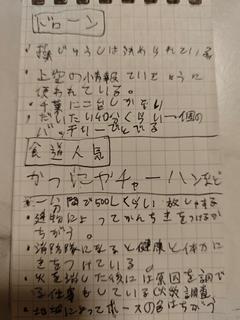 ドローン
・操じゅうしは決められている
・上空の小情報ていさつように
使われている。
・千葉に二台しかない
・だいたい40分くらい一個の
バッテリーでとべる
食道人気
かつどんやチャーハンなど
・一分間で500Lくらい放しゃする
・建物によってかんち きをつけるか
ちがう。
・消防隊になると健康と体力に
きをつけている。
・火を消した後には原因を調べ
る仕事もしている(火災調査
・地域によってホースの色はちがう